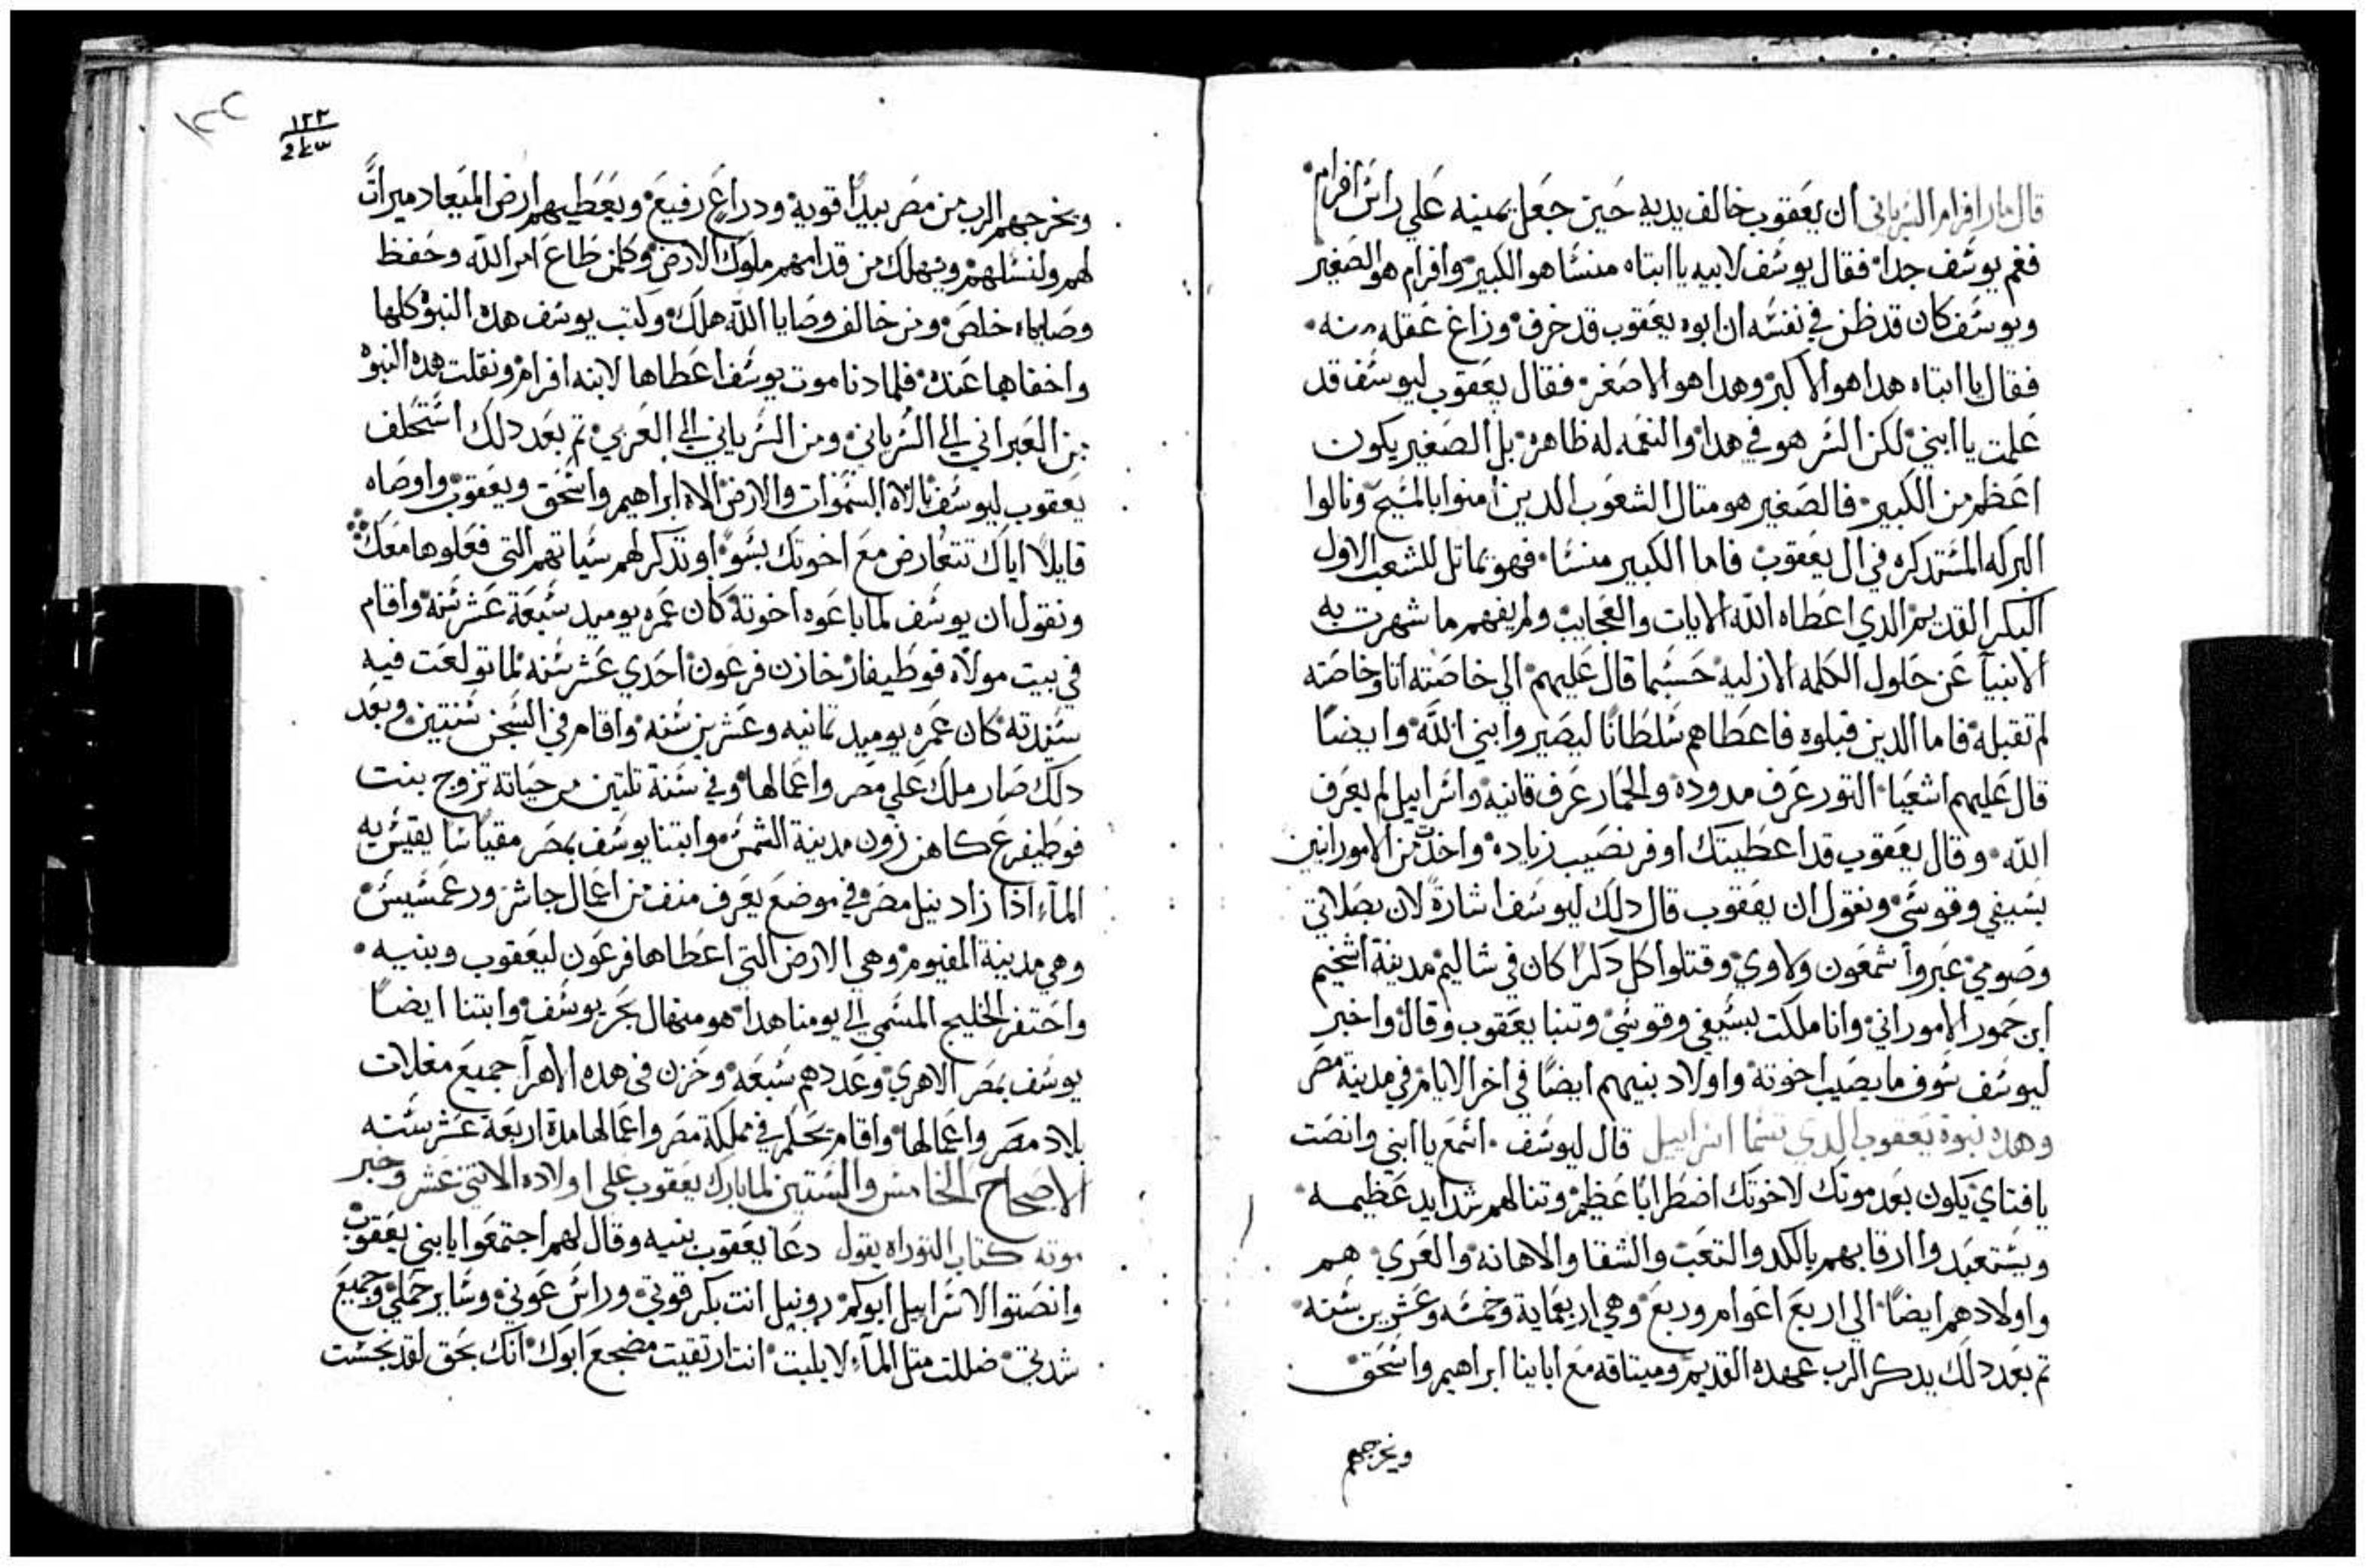 قال مار افرام السرياني ان يعقوب خالف يديه حين جعل يمينه علي راس افرام
فغم يوسف جدا فقال يوسف لابيه يا ابتاه منسا هو الكبير وافرام هو الصغير
ويوسف كان قد ظن في نفسه ان ابوه يعقوب قد خرف وزاغ عقله منه
فقال يا ابتاه هدا هو الاكبر وهدا هو الاصغر فقال يعقوب ليوسف قد
علمت يا ابني لكن السر هو في هدا والنعمه له ظاهره بل الصغير يكون
اعظم من الكبير فالصغير هو متال الشعوب الدين امنوا بالمسيح ونالوا
البركه المستدكره في ال يعقوب فاما الكبير منسا فهو تماتل للشعب الاول
البكر القديم الدي اعطاه الله الايات والعجايب ولم يفهم ما شهرت به
الانبيا عن حلول الكلمه الازليه حسبما قال عليهم الي خاصته اتا وخاصته
لم تقبله فاما الدين قبلوه فاعطاهم سلطانا ليصيروا بني الله وايضا
قال عليهم اشعيا التور عرف مدوده والحمار عرف قانيه واسراييل لم يعرف
الله وقال يعقوب قد اعطيتك اوفر نصيب زياده واخدت من الامورانين
بسيفي وقوسي ونقول ان يعقوب قال دلك ليوسف اشارة لان بصلاتي
وصومي عبروا شمعون ولاوي وقتلوا كل دكرا كان في شاليم مدينة اشخيم
ابن حمور الاموراني وانا ملكت بسيفي وقوسي وتنبا يعقوب وقال واخبر
ليوسف سوف ما يصيب اخوته واولاد بنيهم ايضا في اخر الايام في مدينة مصر
وهده نبوة يعقوب الدي تسما اسراييل قال ليوسف اسمع يا ابني وانصت
يا فتاي يكون بعد موتك لاخوتك اضطرابا عظيم وتنالهم شدايد عظيمه
ويستعبدوا ارقابهم بالكد والتعب والشقا والاهانه والعري هم
واولادهم ايضا الي اربع اعوام وربع وهي اربعماية وخمسه وعشرين سنه
تم بعد دلك يدكر الرب عهده القديم وميتاقه مع اباينا ابراهيم واسحق
ويخرجهم
١٢٢
ويخرجهم الرب من مصر بيدا قوية ودراع رفيع ويعطيهم ارض الميعاد ميراتا
لهم ولنسلهم ويهلك من قدامهم ملوك الارض وكلمن طاع امر الله وحفظ
وصاياه خلص ومن خالف وصايا الله هلك وكتب يوسف هده النبوة كلها
واخفاها عنده فلما دنا موت يوسف اعطاها لابنه افرام ونقلت هده النبوة
من العبراني الي السرياني ومن السرياني الي العربي تم بعد دلك استحلف
يعقوب ليوسف بالاه السموات والارض الاه ابراهيم واسحق ويعقوب واوصاه
قايلا اياك تتعارض مع اخوتك بسو او تدكر لهم سياتهم التي فعلوها معك
ونقول ان يوسف لما باعوه اخوته كان عمره يوميد سبعة عشر سنة واقام
في بيت مولاه فوطيفار خازن فرعون احدي عشر سنه لما تولعت فيه
سيدته كان عمره يوميد تمانيه وعشرين سنه واقام في السجن سنتين وبعد
دلك صار ملك علي مصر واعمالها وفي سنة تلتين من حياته تزوج بنت
فوطيفرع كاهن زون مدينة الشمس وابتنا يوسف بمصر مقياسا يقيس به
الماء ادا زاد نيل مصر في موضع يعرف منف من اعمال جاشر ورعمسيس
وهي مدينة الفيوم وهي الارض التي اعطاها فرعون ليعقوب وبنيه
واحتفر الخليج المسمي الي يومنا هدا هو منهال بحر يوسف وابتنا ايضا
يوسف بمصر الاهري وعددهم سبعه وخزن في هده الاهرآ جميع مغلات
بلاد مصر واعمالها واقام يحكم في مملكة مصر واعمالها مدة اربعة عشر سنه
الاصحاح الخامس والستين لما بارك يعقوب علي اولاده الاتني عشر وخبر
موته كتاب التوراه يقول دعا يعقوب بنيه وقال لهم اجتمعوا يا بني يعقوب
وانصتوا لاسراييل ابوكم روبيل انت بكر قوتي وراس عوني وساير حملي وجميع
شدتي ضللت متل الماء لا يلبت انت ارتقيت مضجع ابوك انك بحق لقد نجست